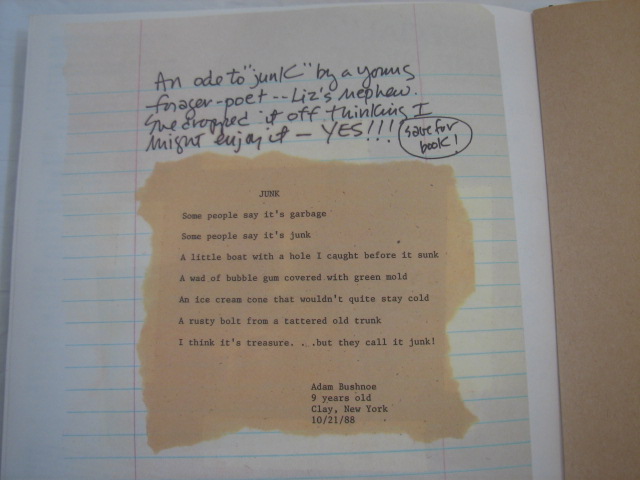 An ode to "junk" by a young
forager-poet -- Liz's nephew.
She dropped it off thinking I
might enjoy it — YES!!!
save for
book!
JUNK
Some people say it's garbage
Some people say it's junk
A little boat with a hole I caught before it sunk
A wad of bubble gum covered with green mold
An ice cream cone that wouldn't quite stay cold
A rusty bolt from a tattered old trunk
I think it's treasure. . .but they call it junk!
Adam Bushnoe
9 years old
Clay, New York
10/21/88